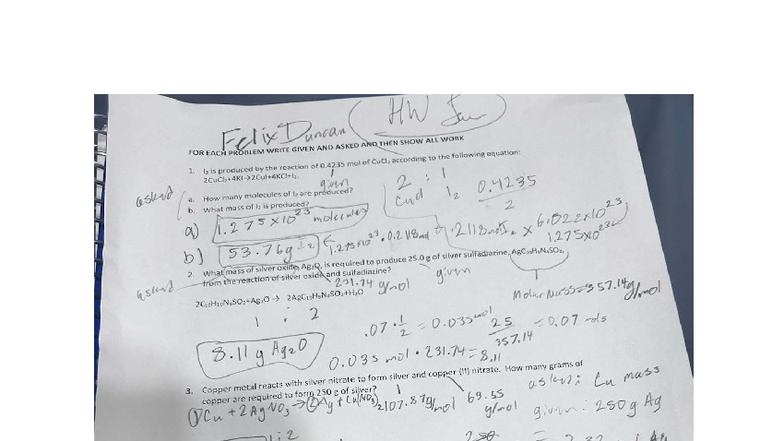 Felix Duncan
HW
FOR EACH PROBLEM WRITE GIVEN AND ASKED AND THEN SHOW ALL WORK
1. I₂ is produced by the reaction of 0.4235 mol of CuCl₂ according to the following equation:
2CuCl₂+4KI→2CuI+4KCl+I₂.
given
asked
a. How many molecules of I₂ are produced?
b. What mass of I₂ is produced?
2 : 1
I₂
0.4235
2
a) 1.275x10²³ molecules
.2118 mol I₂ x 6.022x10²³
1.275x10²³
b) 53.76g I₂
2. What mass of silver oxide, Ag₂O, is required to produce 25.0 g of silver sulfadiazine, AgC₁₀H₉N₄SO₂,
from the reaction of silver oxide and sulfadiazine?
asked
given
231.74 g/mol
2C₁₀H₁₀N₄SO₂+Ag₂O → 2AgC₁₀H₉N₄SO₂+H₂O
Molar Mass=357.14g/mol
1 : 2
.07 · 1/2 = 0.035 mol
25
357.14
= 0.07 mols
8.11 g Ag₂O
0.035 mol · 231.74 = 8.11
3. Copper metal reacts with silver nitrate to form silver and copper (II) nitrate. How many grams of
copper are required to form 250 g of silver?
asked: Cu mass
①Cu + 2AgNO₃ → ②Ag + Cu(NO₃)₂
107.87g/mol
63.55
g/mol
given: 250g Ag
1:2
250